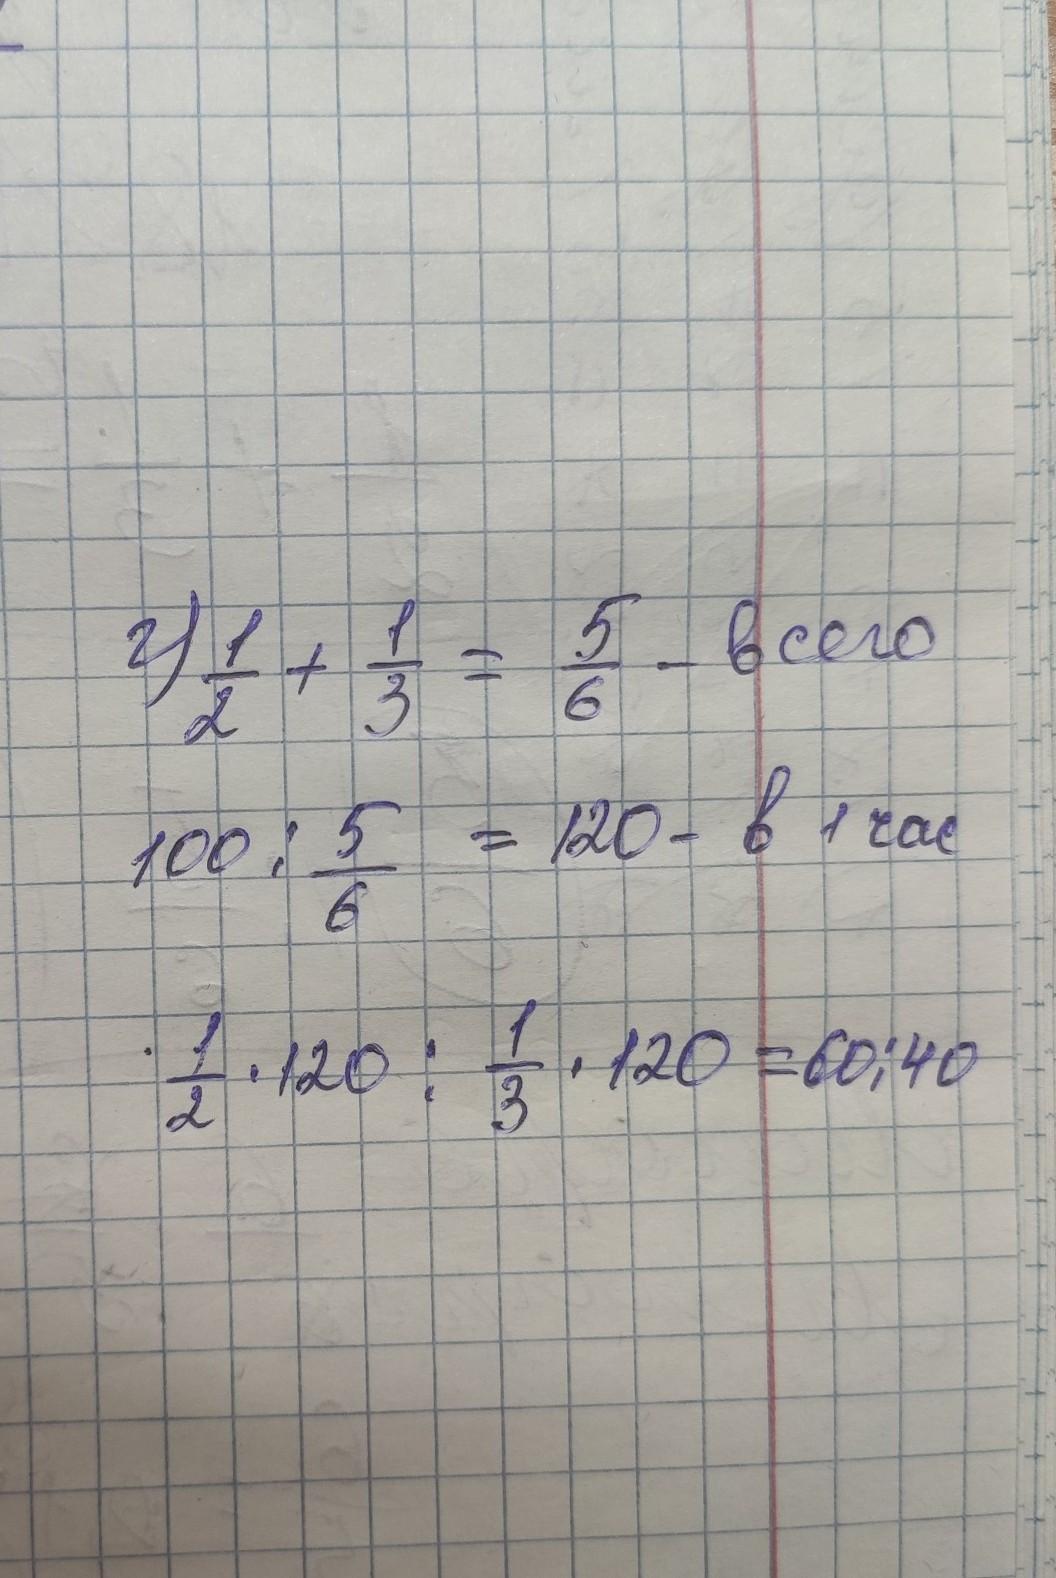 г) 1/2 + 1/3 = 5/6 - всего
100 : 5/6 = 120 - в 1 час
1/2 · 120 : 1/3 · 120 = 60:40